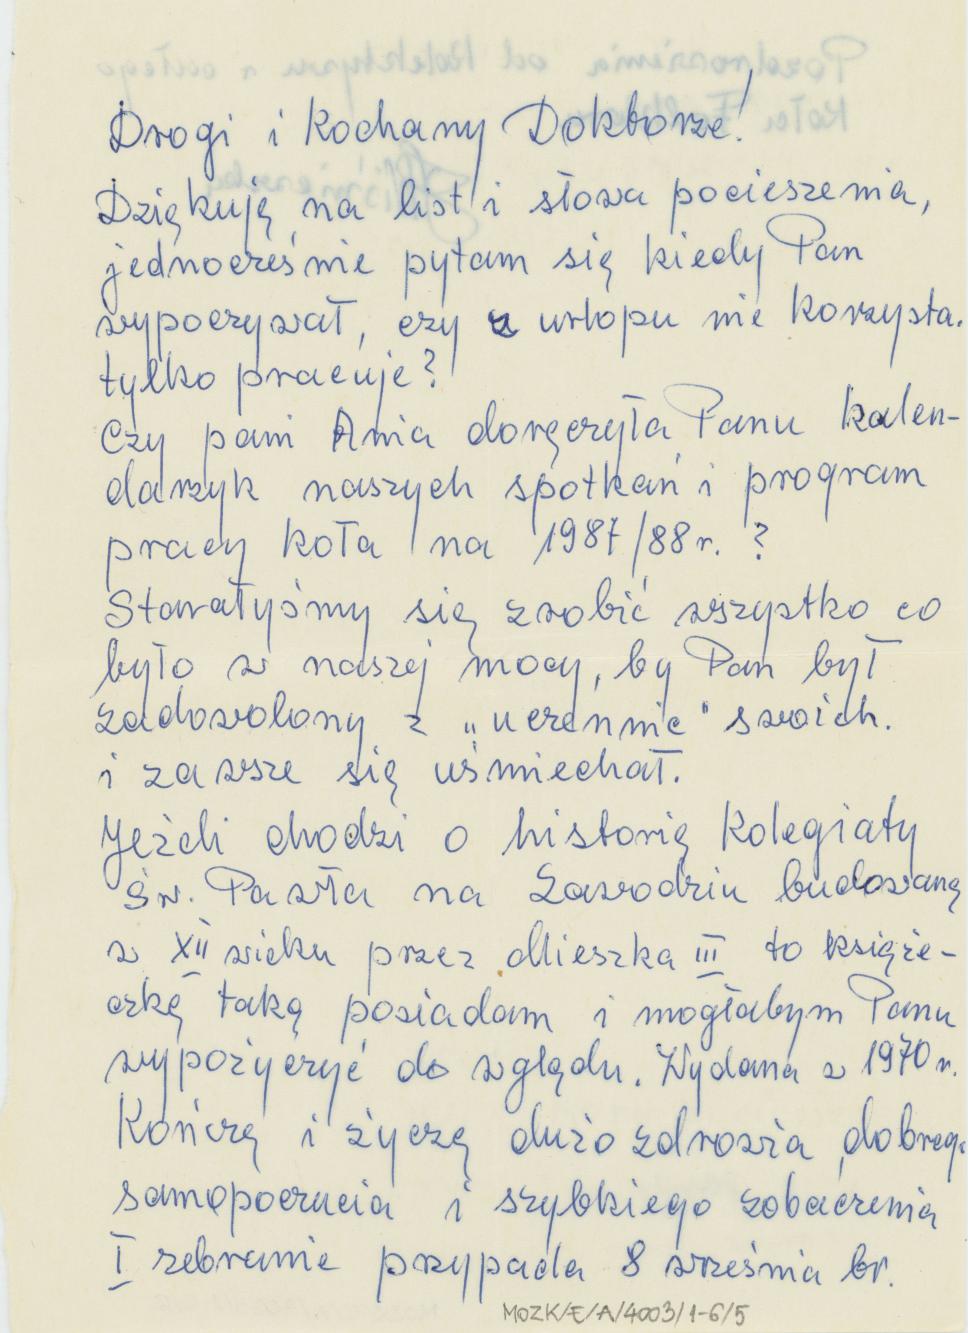 Drogi i Kochany Doktorze!
Dziękuję na list i słowa pocieszenia,
jednocześnie pytam się kiedy Pan
wypoczywał, czy z urlopu nie korzysta.
tylko pracuje?
Czy pani Ania doręczyła Panu kalen-
darzyk naszych spotkań i program
pracy koła na 1987/88 r. ?
Starałyśmy się zrobić wszystko co
było w naszej mocy, by Pan był
zadowolony z „uczennic" swoich.
i zawsze się uśmiechał.
Jeżeli chodzi o historię Kolegiaty
Św. Pawła na Zawodziu budowaną
w XII wieku przez Mieszka III to książe-
czkę taką posiadam i mogłabym Panu
wypożyczyć do wglądu. Wydana w 1970 r.
Kończę i życzę dużo zdrowia, dobreg.
samopoczucia i szybkiego zobaczenia
I zebranie przypada 8 września br.
MOZK/E/A/4003/1-6/5